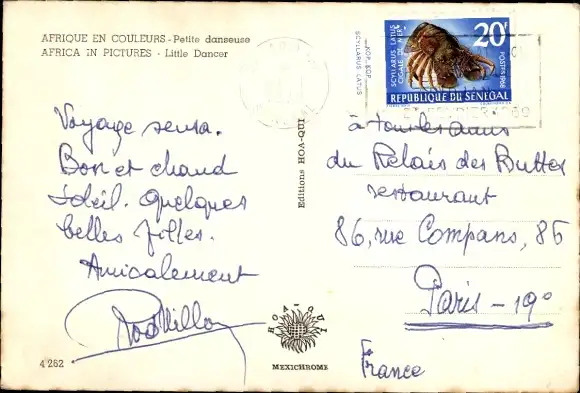 AFRIQUE EN COULEURS - Petite danseuse
AFRICA IN PICTURES - Little Dancer
Voyage sensa.
Bon et chaud
soleil. Quelques
belles filles.
Amicalement
4 262
Editions HOA-QUI
HOA-QUI
MEXICHROME
SCYLLARUS LATUS
CIGALE DE MER
KOP-KOP
SCYLLARUS LATUS
20F
POSTES 1968
REPUBLIQUE DU SÉNÉGAL
à tous les amis
du Relais des Buttes
restaurant
86, rue Compans, 86
Paris - 19°
France